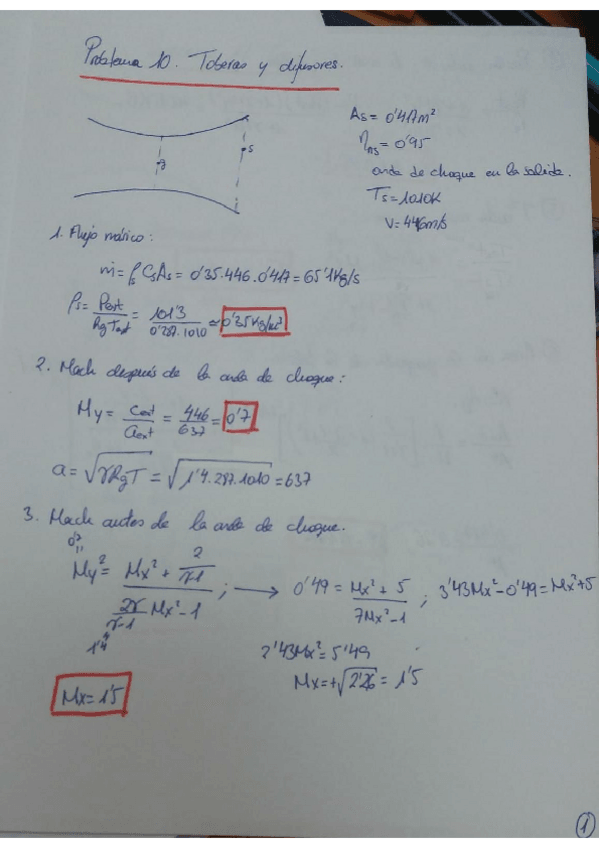 Problema 10. Toberas y difusores.
As = 0'417m²
ηAS = 0'95
onda de choque en la salida.
Ts = 1010K
V = 446m/s
g
s
1. Flujo másico:
ṁ = ρs Cs As = 0'35·446·0'417 = 65'1Kg/s
ρs = Pext / Rg Text = 101'3 / 0'287·1010 ≈ 0'35Kg/m³
2. Mach después de la onda de choque:
My = Cext / aext = 446 / 637 = 0'7
a = √γRgT = √1'4·287·1010 = 637
3. Mach antes de la onda de choque.
0'7
My² = (Mx² + 2/γ-1) / (2γ/γ-1 Mx² - 1) ; → 0'49 = Mx² + 5 / 7Mx² - 1 ; 3'43Mx² - 0'49 = Mx² + 5
1'4
2'43Mx² = 5'49
Mx = +√2'26 = 1'5
Mx = 1'5
1